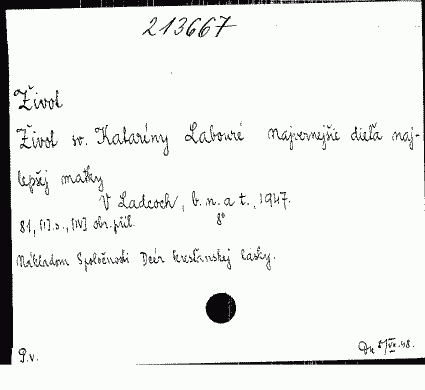 213667
Život
Život sv. Kataríny Labouré najvernejšie dieťa naj-
lepšej matky
V Ladcoch, b. n. a t., 1947.
81, [1] s., [IV] obr. príl. 8°
Nákladom Spoločnosti Dcér kresťanskej lásky.
P.v.
48.